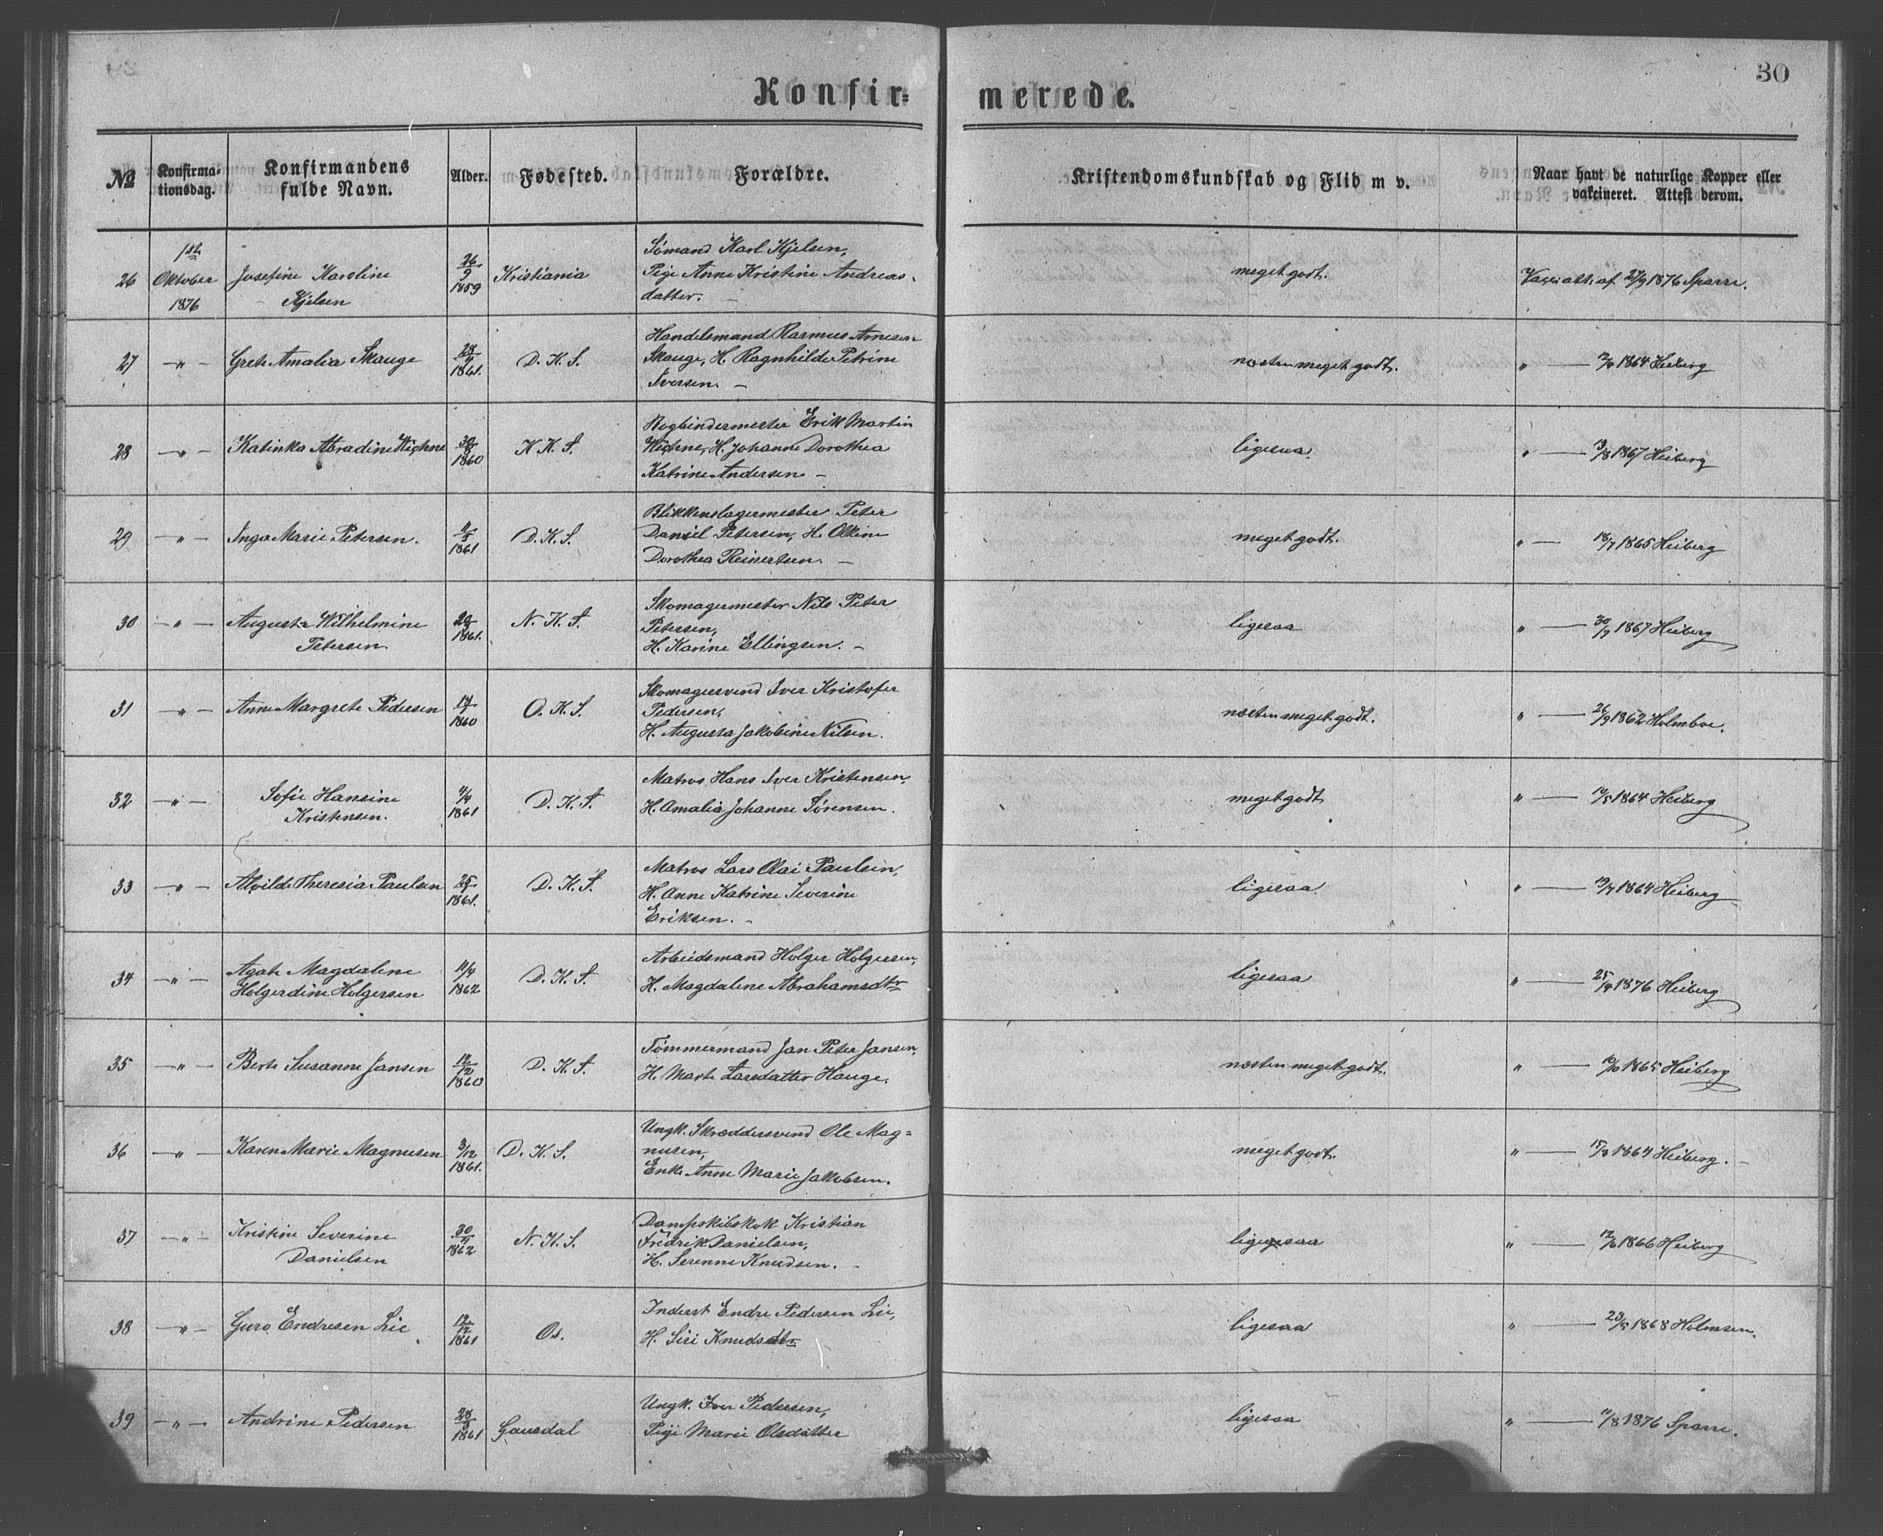 30
Konfir= merede.
No
Konfirma-
tionsdag.
Konfirmandens
fulde Navn.
Alder.
Fødested.
Forældre.
Kristendomskundskab og Flid m v.
Naar havt de naturlige Kopper eller
vakcineret. Attest derom.
26
1ste
Oktober
1876
Josefine Karoline
Kjelsen
26/9
1859
Kristiania
Sømand Karl Kjelsen,
Pige Anne Kristine Andreas-
datter. –
meget godt.
Vacc: att: af 27/9 1876 Sparre.
27
— " —
Grete Amalia Skauge
1861.
D. K. S.
Handelsmand Rasmus Arnesen
Skauge, H. Ragnhilde Petrine
Iversen. –
næsten meget godt.
" — 1864 Heiberg
28
— " —
Katinka Abradine Wichne
1860
K K. S.
Bogbindermester Erik Martin
Wichne, H. Johanne Dorothea
Katrine Andersen –
ligesaa.
" — 1867 Heiberg
29
— " —
Inga Marie Petersen.
1861
D. K. S.
Blikkenslagermester Peter
Daniel Petersen, H. Oline
Dorothea Reinertsen. –
meget godt.
" — 18/7 1865 Heiberg
30
— " —
Augusta Wilhelmine
Petersen.
1861.
N. K. S.
Skomagermester Nils Peter
Petersen,
H. Karine Ellingsen. –
ligesaa
" — 30/7 1867 Heiberg
31
— " —
Anne Margrete Pedersen
1860
O. K. S.
Skomagersvend Iver Kristofer
Pedersen,
H. Augusta Jakobine Nilsen.
næsten meget godt.
" — 26/9 1862 Holmboe.
32
— " —
Sofie Hansine
Kristensen.
1861
D. K. S.
Matros Hans Iver Kristensen,
H. Amalia Johanne Sørensen.
meget godt
" — 1864 Heiberg
33
— " —
Alvilde Theresia Paulsen
1861.
D. K. S.
Matros Lars Olai Paulsen,
H. Anne Katrine Severine
Eriksen. –
ligesaa.
" — 1864 Heiberg
34
— " —
Agate Magdalene
Holgerdine Holgersen
1862
D. K. S.
Arbeidsmand Holger Holgersen,
H. Magdalene Abrahamsdtr
ligesaa
" — 25/4 1876 Heiberg
35
— " —
Berte Susanne Jansen
18/12
1860
D. K. S.
Tømmermand Jan Peter Jansen,
H. Marte Larsdatter Hauge,
næsten meget godt.
" — 1865 Heiberg
36
— " —
Karen Marie Magnusen
3/12
1861.
D. K. S.
Ungk. Skræddersvend Ole Mag=
nusen,
Enke Anne Marie Jakobsen.
meget godt.
" — 1864 Heiberg. –
37
— " —
Kristine Severine
Danielsen
1862
N. K. S.
Dampskibskok Kristian
Fredrik Danielsen,
H. Serenne Knudsen. –
ligesaa
" — 1866 Heiberg
38
— " —
Guro Endresen Lie
12/12
1861
Os.
Inderst Endre Pedersen Lie,
H. Siri Knudsdtr
ligesaa
" — 23/5 1868 Holmsen.
39
— " —
Andrine Pedersen
1861
Gausdal
Ungk. Iver Pedersen,
Pige Marie Olsdatter
ligesaa
" — 11/8 1876 Sparre.